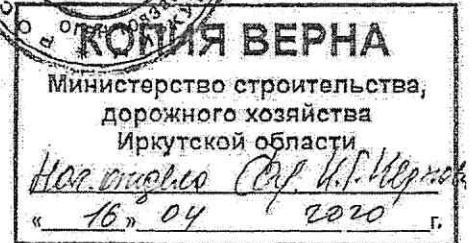 КОПИЯ ВЕРНА
Министерство строительства,
дорожного хозяйства
Иркутской области
Нач. отдела И.Г.
« 16 » 04 2020 г.